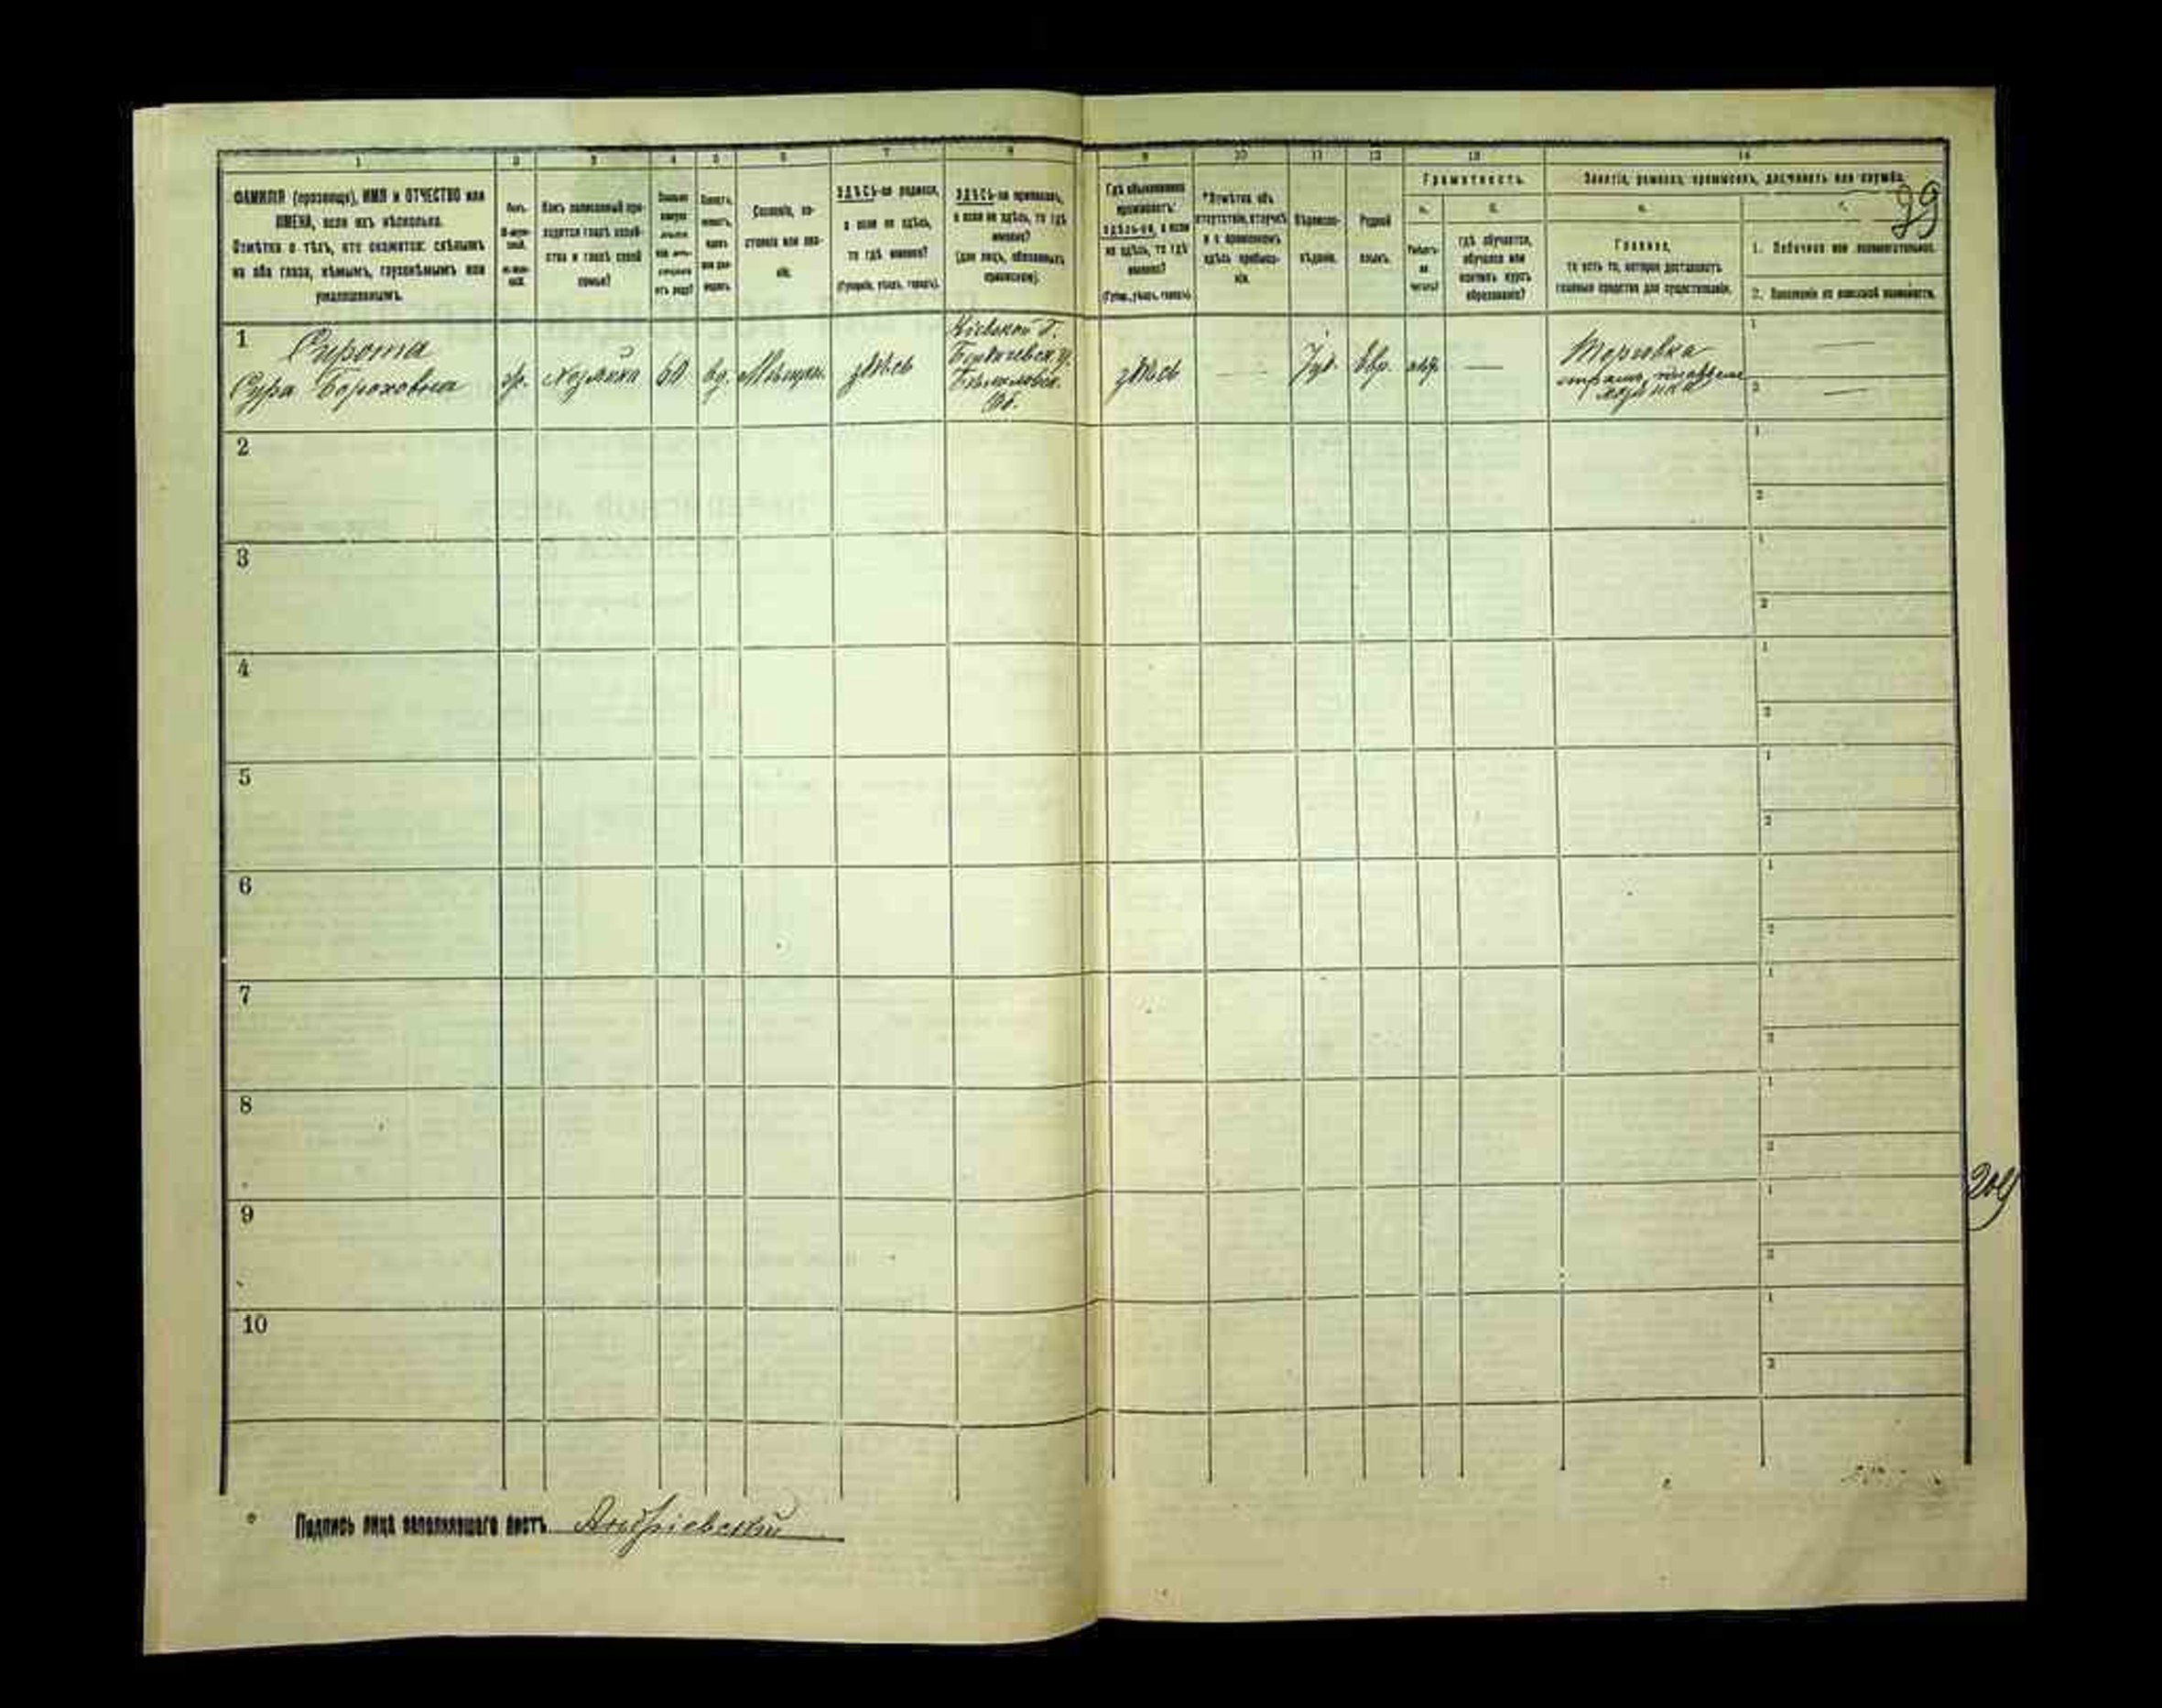 1 2 3 4 5 6 7 8 9 10 11 12 13 14
ФАМИЛІЯ (прозвище), ИМЯ и ОТЧЕСТВО или
ИМЕНА, если ихъ нѣсколько.
Отмѣтка о тѣхъ, кто окажется: слѣпымъ
на оба глаза, нѣмымъ, глухонѣмымъ или
умалишеннымъ.
Полъ.
Какъ записанный при-
ходится главѣ хозяй-
ства и главѣ своей
семьи?
Сословіе, со-
стояніе или зва-
ніе.
ЗДѢСЬ-ли родился,
а если не здѣсь,
то гдѣ именно?
(Губернія, уѣздъ, городъ).
ЗДѢСЬ-ли приписанъ,
а если не здѣсь, то гдѣ
именно?
(для лицъ, обязанныхъ
припиской).
Гдѣ обыкновенно
проживаетъ:
здѣсь-ли, а если
не здѣсь, то гдѣ
именно?
(Губер., уѣздъ, городъ).
Отмѣтка объ
отсутствіи, отлучкѣ
и о временномъ
здѣсь пребыва-
ніи.
Вѣроиспо-
вѣданіе.
Родной
языкъ.
Грамотность.
а. б.
Умѣетъ-
ли
читать?
гдѣ обучается,
обучался или
кончилъ курсъ
образованія?
Занятіе, ремесло, промыселъ, должность или служба.
Главное,
то есть то, которое доставляетъ
главныя средства для существованія.
1. Побочное или вспомогательное.
2. Положеніе по воинской повинности.
1
Сирота
Сура Бороховна
ж.
хозяйка
60
вд.
здѣсь
Кіевской г.
здѣсь
—
Іуд.
Евр.
—
Торговка
хозяйка
1 —
2 —
2 1 2
3 1 2
4 1 2
5 1 2
6 1 2
7 1 2
8 1 2
9 1 2
10 1 2
Подпись лица заполнявшаго листъ Андріевскій